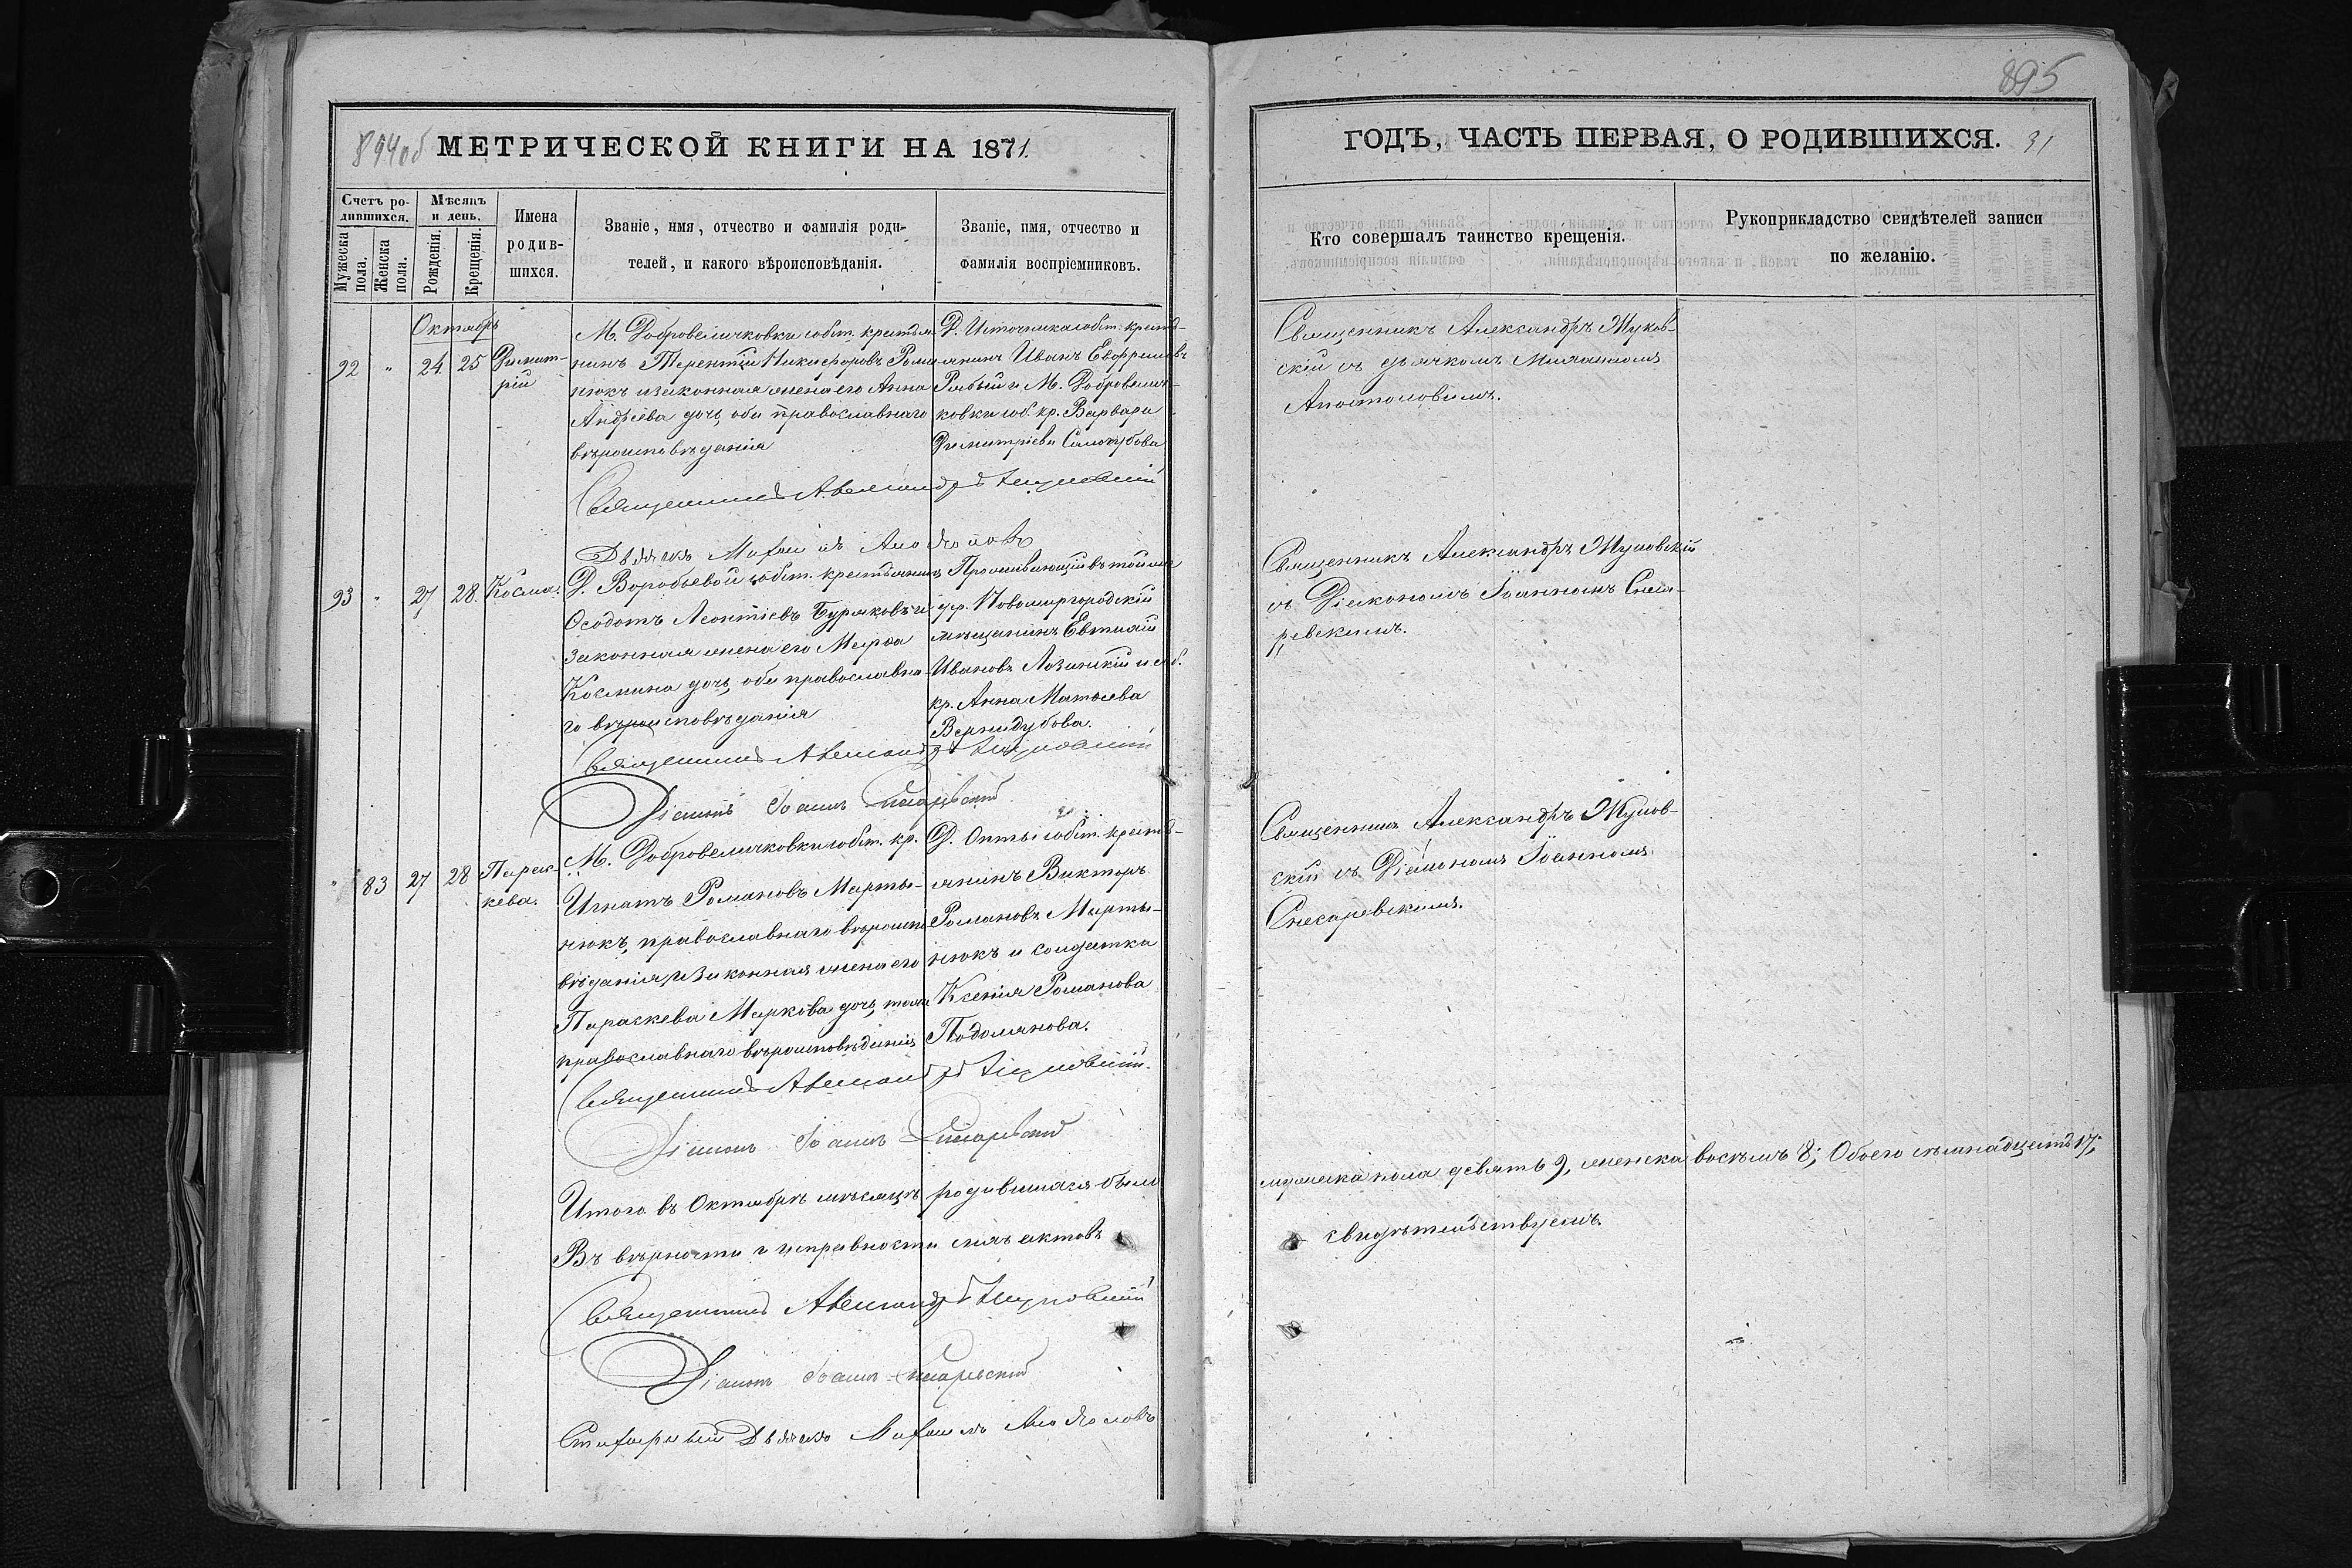 895
894об МЕТРИЧЕСКОЙ КНИГИ НА 1871.
Счетъ ро-
дившихся.
Мѣсяцъ
и день.
Мужеска
пола.
Женска
пола.
Рожденія.
Крещенія.
Имена
родив-
шихся.
Званіе, имя, отчество и фамилія роди-
телей, и какого вѣроисповѣданія.
Званіе, имя, отчество и
фамилія воспріемниковъ.
Октябрь
92 " 24 25 Димит-
рій
М. Добровеличковки собст. крестья-
нинъ Терентій Никифоровъ Рома
нюкъ и законная жена его Анна
Андреева дочь, оба православнаго
вѣроисповѣданія
Д. Источника собст. крестья-
янинъ Иванъ Евфремовъ
Рябый и М. Добровелич-
ковки соб. кр. Варвара
Димитріева Самогубова
Священникъ Александръ Жуковскій
Дьячекъ Михаилъ Апостоловъ
93 " 27 28. Косма.
Д. Воробьевой собст. крестьянинъ
Ѳеодотъ Леонтіевъ Буряковъ и
законная жена его Марѳа
Космина дочь, оба православна-
го вѣроисповѣданія
Проживающій въ той же
др. Новомиргородскій
мѣщанинъ Евтихій
Ивановъ Лозинскій и соб.
кр. Анна Матѳеева
Вернидубова.
Священникъ Александръ Жуковскій
Діаконъ Іоаннъ Снесаревскій
" 83 27 28 Парас-
кева.
М. Добровеличковки собст. кр.
Игнатъ Романовъ Марты-
нюкъ, православнаго вѣроиспо
вѣданія, и законная жена его
Параскева Маркова дочь, тоже
православнаго вѣроисповѣданія
Д. Опты собст. крестья-
янинъ Викторъ
Романовъ Марты-
нюкъ и солдатка
Ксенія Романова
Подолянова.
Священникъ Александръ Жуковскій.
Діаконъ Іоаннъ Снесаревскій
Итого въ Октябрѣ мѣсяцѣ родившихся было
Въ вѣрности и исправности сихъ актовъ
Священникъ Александръ Жуковскій
Діаконъ Іоаннъ Снесаревскій
Дьячекъ Михаилъ Апостоловъ
ГОДЪ, ЧАСТЬ ПЕРВАЯ, О РОДИВШИХСЯ. 31
Кто совершалъ таинство крещенія.
Рукоприкладство свидѣтелей записи
по желанію.
Священникъ Александръ Жуков-
скій съ дьячкомъ Михаиломъ
Апостоловымъ.
Священникъ Александръ Жуковскій
съ Діакономъ Іоанномъ Снеса-
ревскимъ.
Священникъ Александръ Жуков-
скій съ Діакономъ Іоанномъ
Снесаревскимъ.
мужеска пола девять 9, женска восемь 8; Обоего семнадцать 17;
свидѣтельствуемъ.